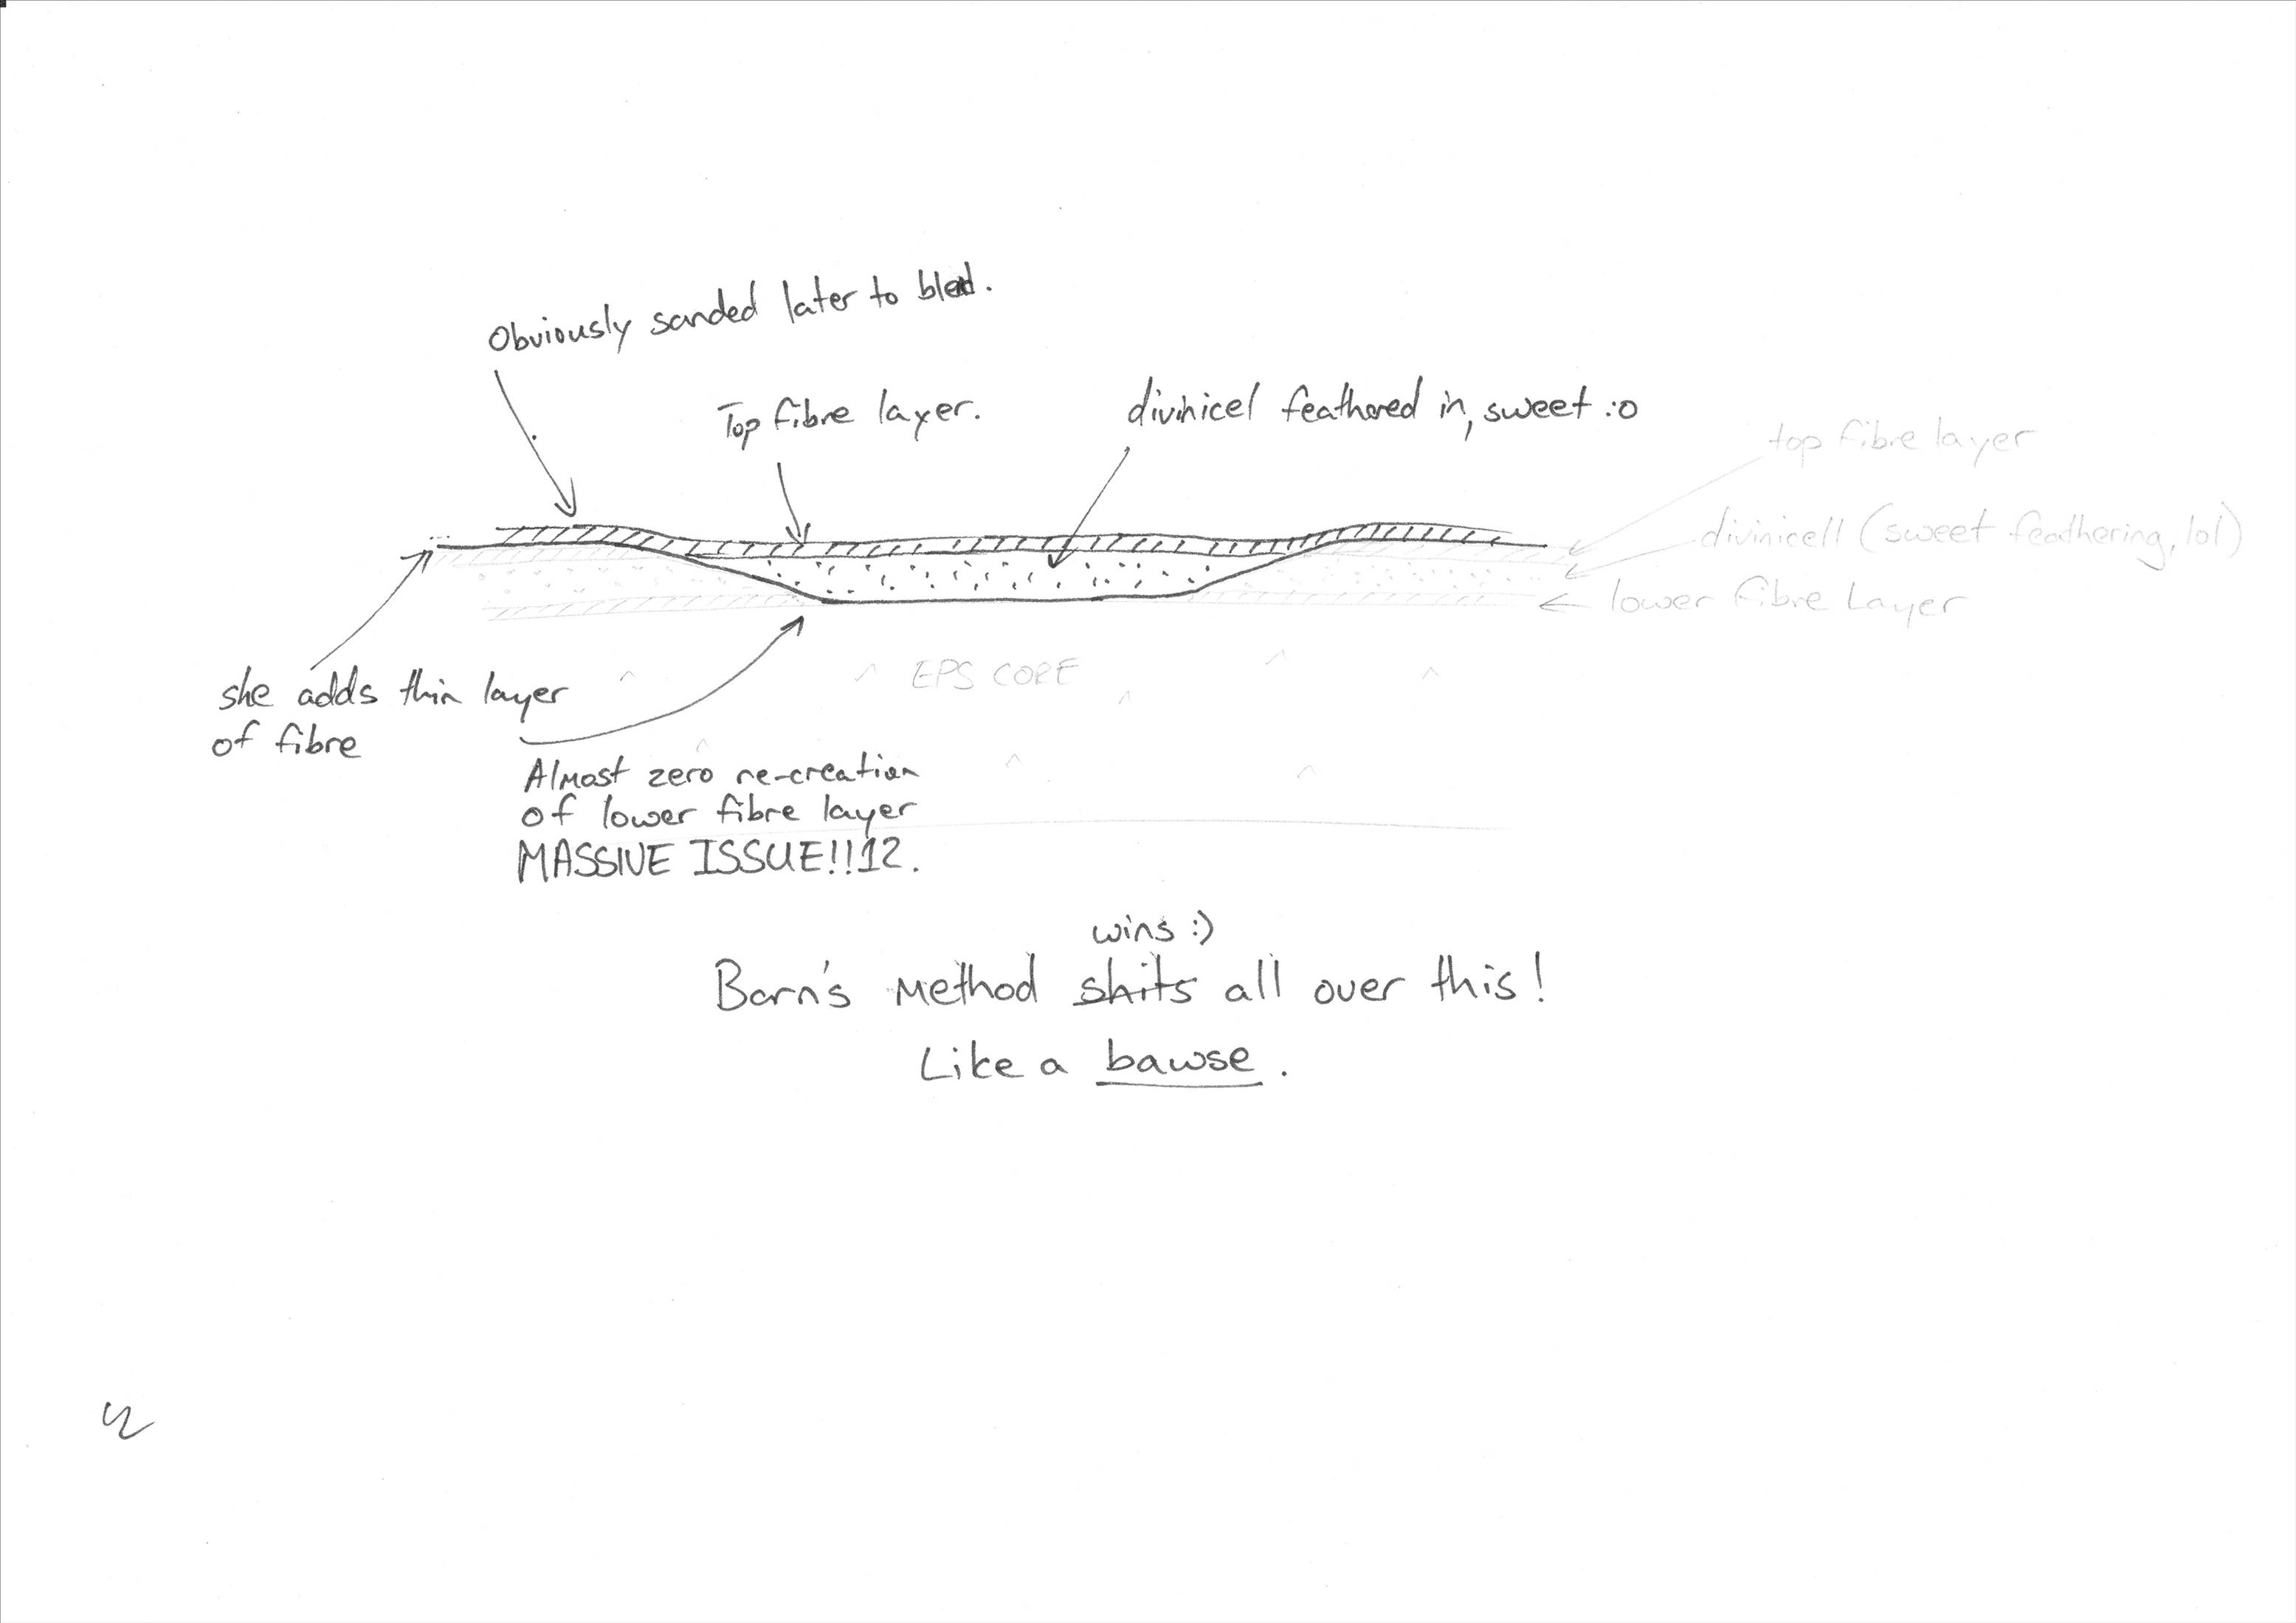 Obviously sanded later to blend.
Top fibre layer.
divinicel feathered in, sweet :o
top fibre layer
divinicell (sweet feathering, lol)
lower fibre Layer
she adds thin layer
of fibre
EPS CORE
Almost zero re-creation
of lower fibre layer
MASSIVE ISSUE!!12.
wins :)
Barn's Method shits all over this!
Like a bawse.